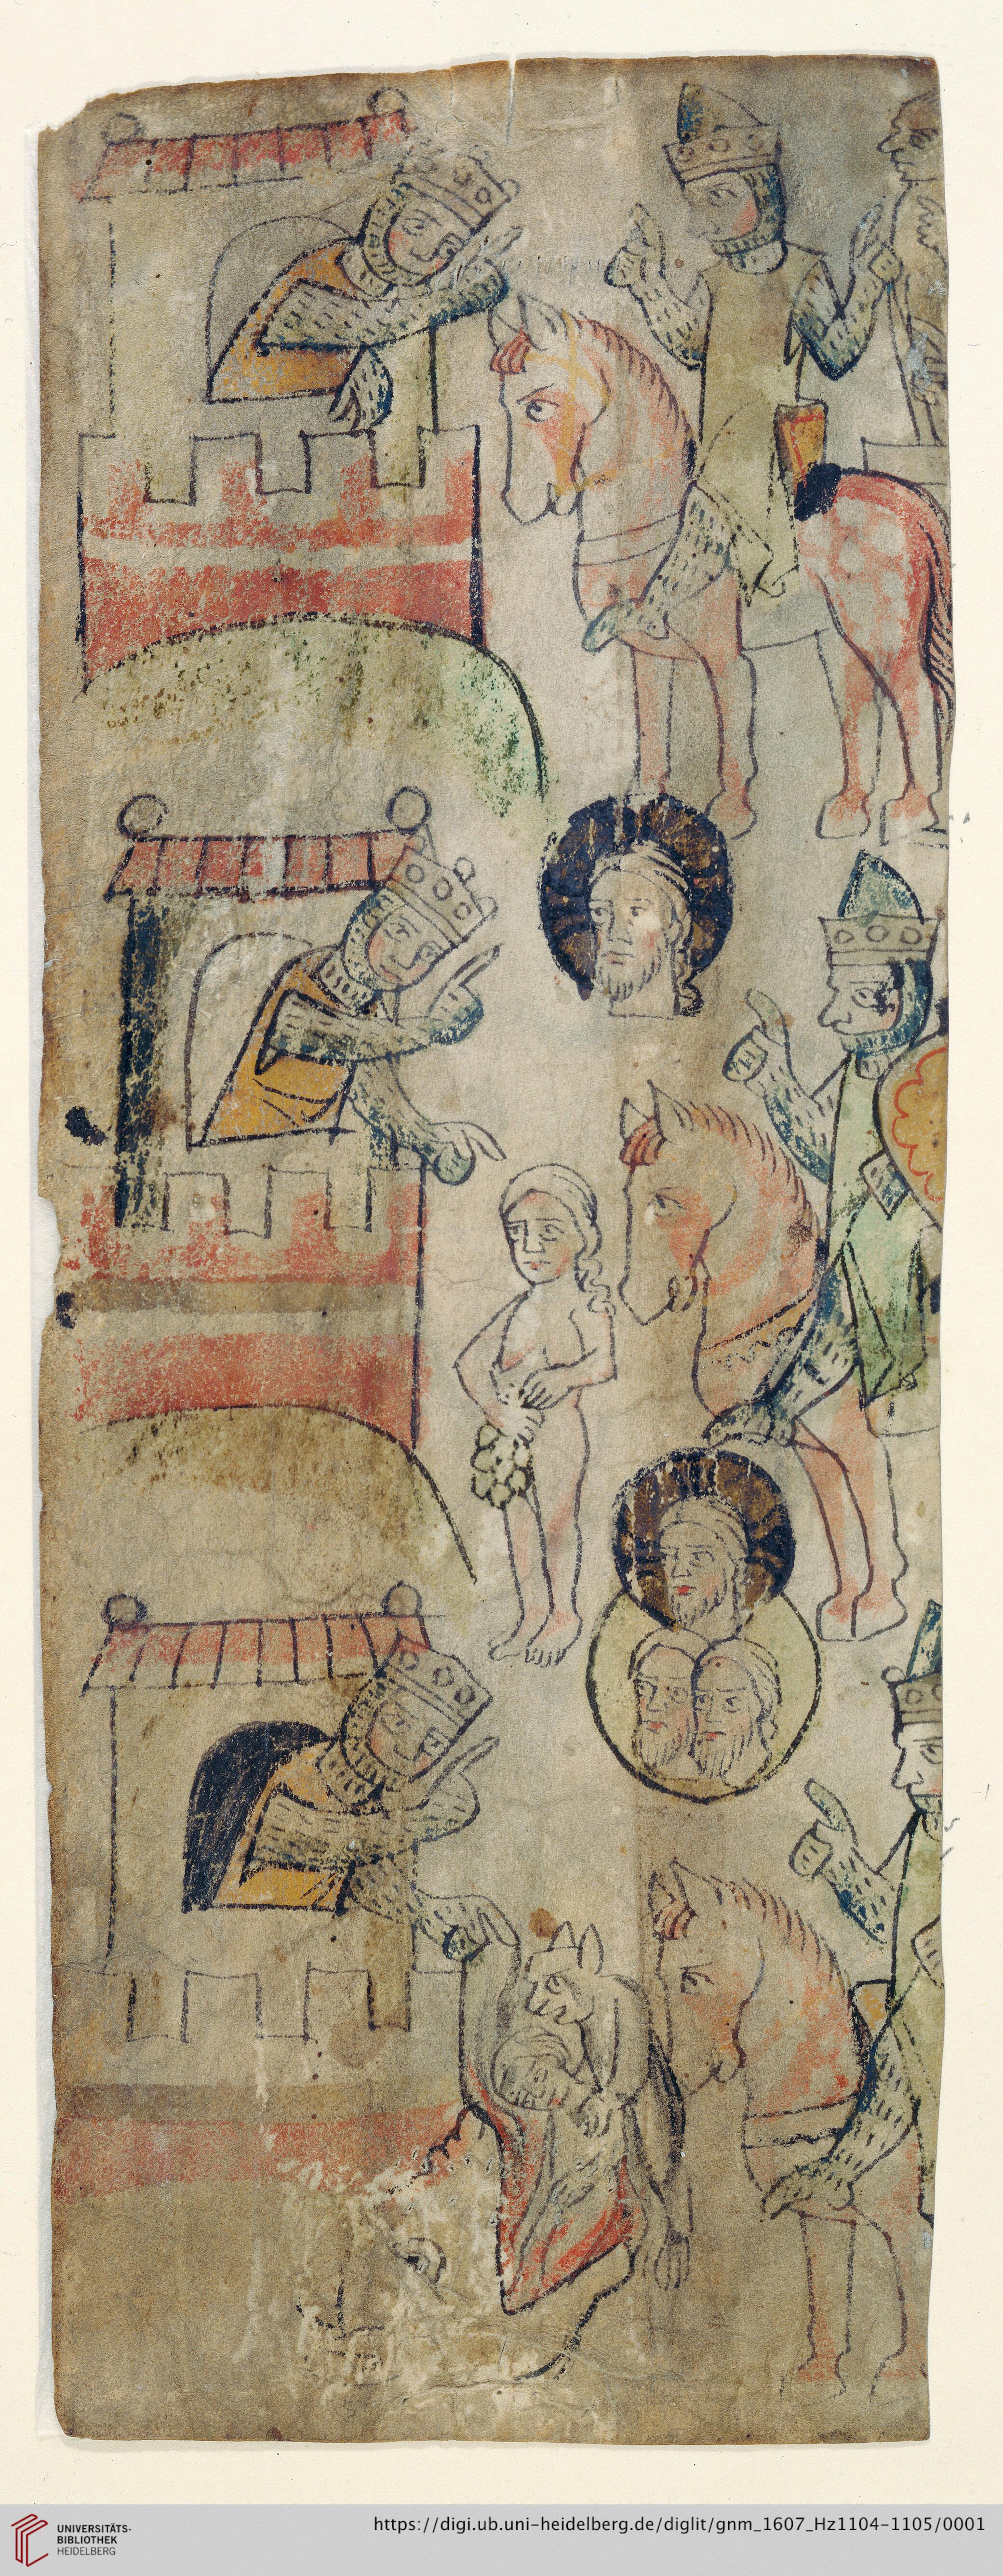 UNIVERSITÄTS-
BIBLIOTHEK
HEIDELBERG
https://digi.ub.uni-heidelberg.de/diglit/gnm_1607_Hz1104-1105/0001